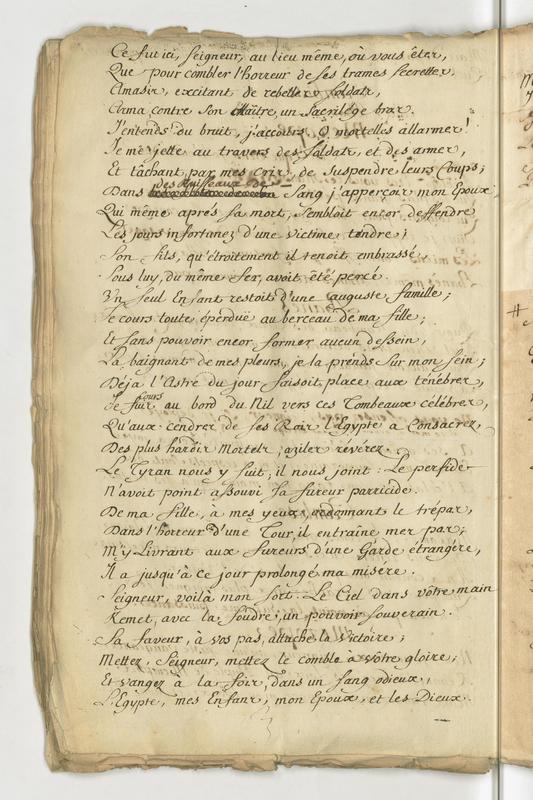 Ce fut ici, Seigneur, au lieu même, où vous êtes,
Que pour combler l'horreur de ses trames secrettes,
Amasis, excitant de rebelles soldats,
Arma contre son Maître, un sacrilége bras.
J'entends du bruit, j'accours, O mortelles allarmes!
Je me jette au travers des soldats, et des armes,
Et tâchant par mes cris, de suspendre leurs coups;
des Ruisseaux de
Dans sang j'apperçois mon Epoux,
Qui même aprés sa mort, sembloit encor deffendre
Les jours infortunez d'une victime tendre;
Son fils, qu'étroitement il tenoit embrassé,
Sous luy, du même fer, avoit êté percé.
Vn seul Enfant restoit d'une auguste famille;
Je cours toute éperduë au berceau de ma fille;
Et sans pouvoir encor former aucun dessein,
La baignant de mes pleurs, je la prends sur mon sein;
Déja l'Astre du jour faisoit place aux ténébres,
cours
Je fuis au bord du Nil vers ces Tombeaux célébres,
Qu'aux cendres de ses Rois l'Egypte a consacrez,
Des plus hardis Mortels, aziles révérez.
Le Tyran nous y suit, il nous joint: Le perfide
N'avoit point assouvi sa fureur parricide.
De ma fille, à mes yeux, ordonnant le trépas,
Dans l'horreur d'une Tour, il entraîne mes pas;
M'y Livrant aux fureurs d'une Garde étrangére,
Il a jusqu'à ce jour prolongé ma misére.
Seigneur, voilà mon sort. Le Ciel dans vôtre main
Remet, avec la foudre, un pouvoir souverain.
Sa faveur, à vos pas, attache la Victoire;
Mettez, Seigneur, mettez le comble à vôtre gloire;
Et vangez à la fois, dans un sang odieux,
L'Egypte, mes Enfans, mon Epoux, et les Dieux.